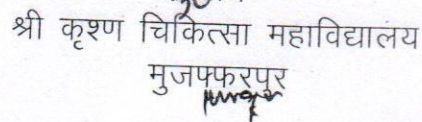 श्री कृश्ण चिकित्सा महाविद्यालय
मुजफ्फरपुर